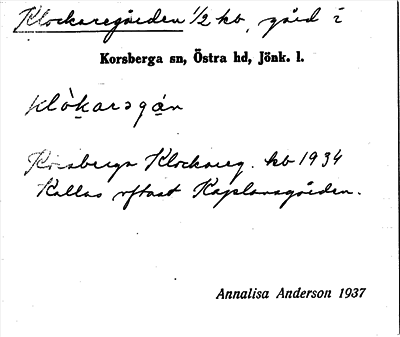 Klockaregården 1/2 kb, gård i
Korsberga sn, Östra hd, Jönk. l.
klòkarsgạn
Korsberga Klockareg. kb 1934
Kallas oftast Kaplansgården.
Annalisa Anderson 1937